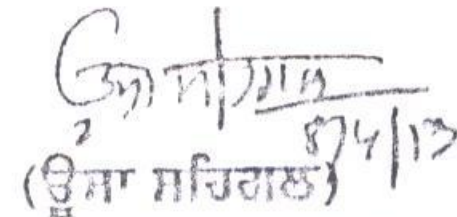 ਊਸ਼ਾ ਸਹਿਗਲ
8/4/13
(ਊਸ਼ਾ ਸਹਿਗਲ)